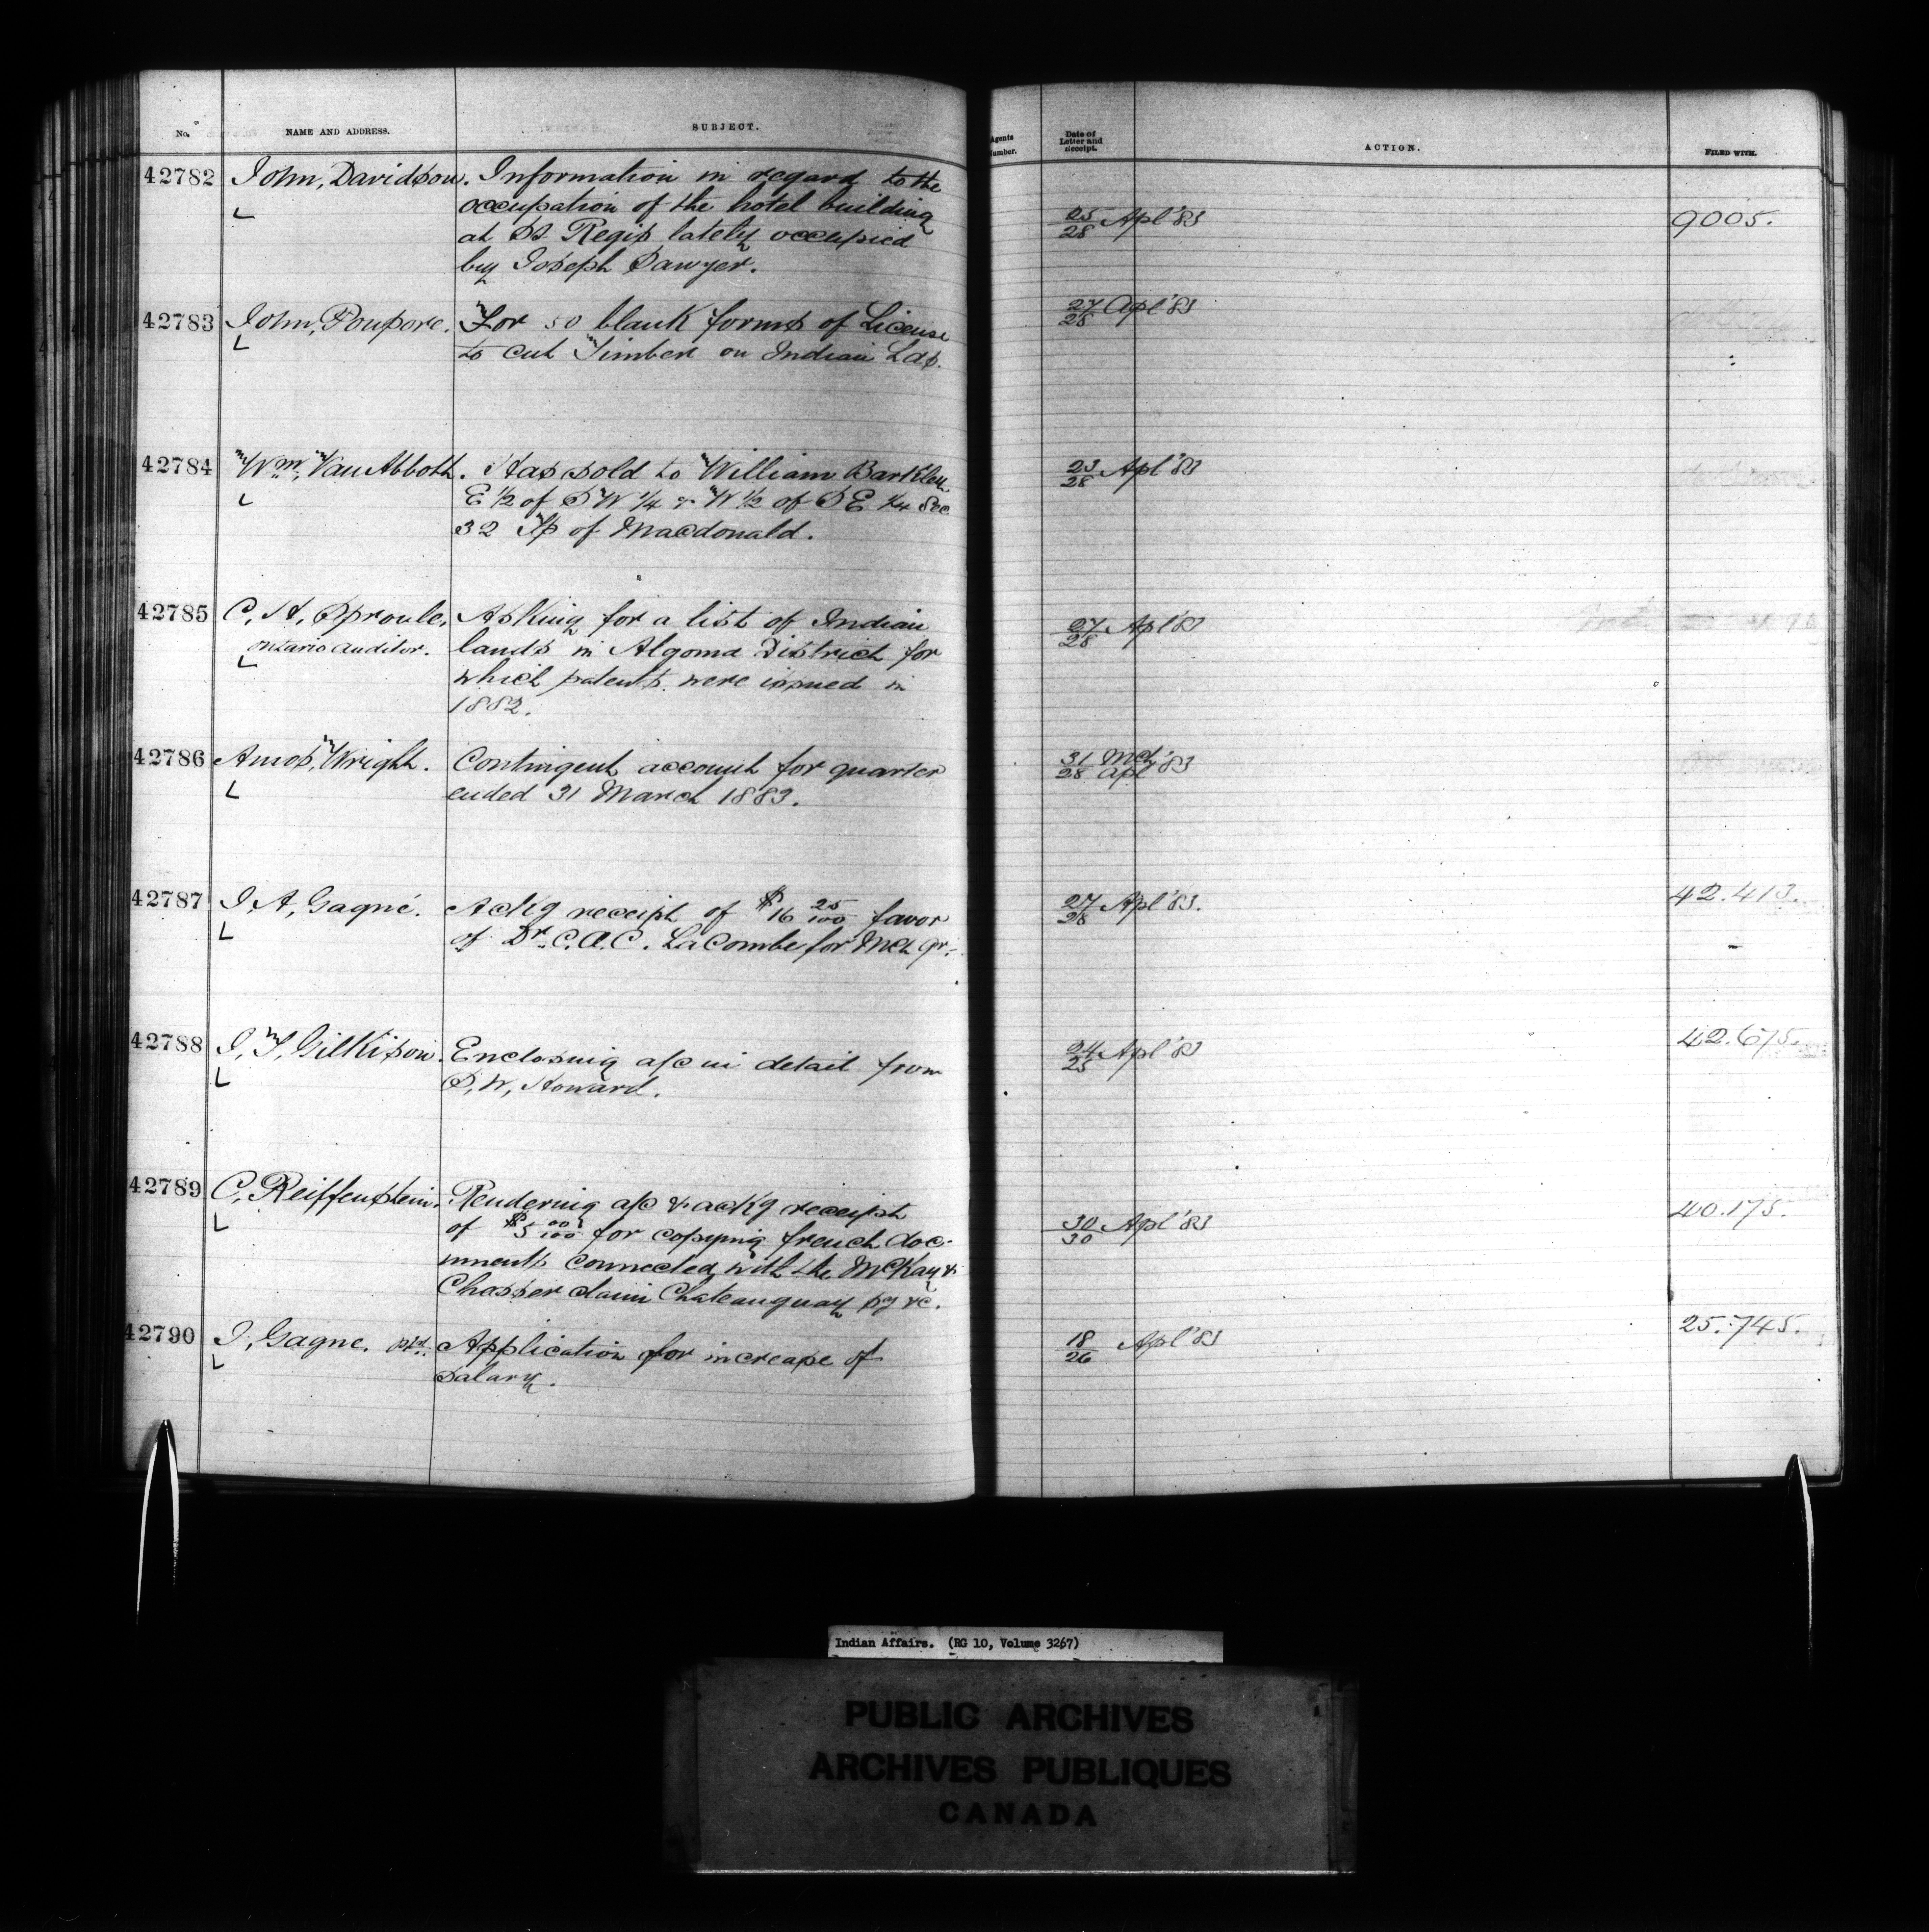 No. NAME AND ADDRESS. SUBJECT. Agents Number. Date of Letter and Receipt. ACTION. FILED WITH.
42782 John, Davidson. Information in regard to the 25/28 Apl '83 9005.
occupation of the hotel building
at St. Regis lately occupied
by Joseph Sawyer.
42783 John, Poupore. For 50 blank forms of License 27/28 Apl '83
to cut Timber on Indian Lds.
42784 Wm, Van Abbott. Has sold to William Barkley 23/28 Apl '83
E 1/2 of S W 1/4 & W 1/2 of S E 1/4 Sec
32 Tp of Macdonald.
42785 C, H, Sproule, Asking for a list of Indian 27/28 Apl '83
Ontario Auditor. lands in Algoma District for
which patents were issued in
1882.
42786 Amos, Wright. Contingent account for quarter 31 Mch/28 Apl '83
ended 31 March 1883.
42787 J, A, Gagné. Ackg receipt of $16 25/100 favor 27/28 Apl '83. 42.413.
of Dr. C. A. C. LaCombe for Mch qr.
42788 J, T, Gilkison. Enclosing a/c in detail from Apl '83 42.675.
S, W, Howard.
42789 C, Reiffenstein. Rendering a/c & ackg receipt 30/30 Apl '83 40.175.
of $5 00/100 for copying french doc-
uments connected with the McKay &
Chasser claim Chateauguay sg &c.
42790 J, Gagne. Application for increase of 18/26 Apl '83 25.745.
Salary.
Indian Affairs. (RG 10, Volume 3267)
PUBLIC ARCHIVES
ARCHIVES PUBLIQUES
CANADA